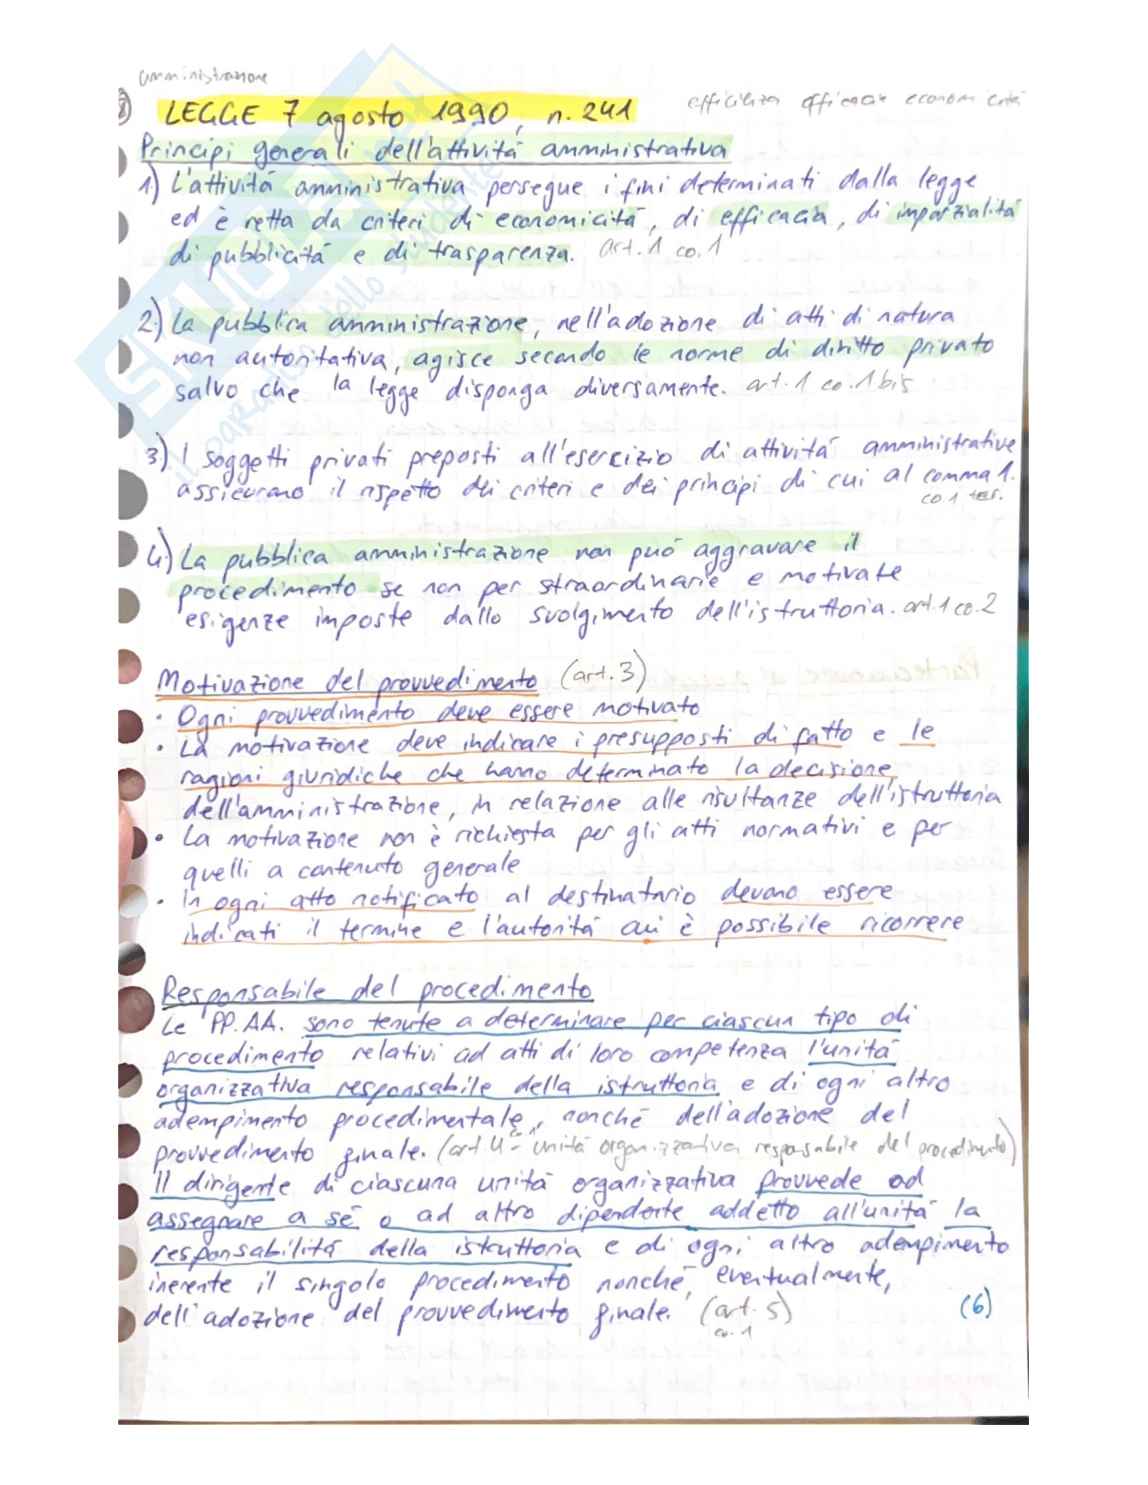 amministrazione
efficienza efficacia economicità
LEGGE 7 agosto 1990, n. 241
Principi generali dell'attività amministrativa
1) L'attività amministrativa persegue i fini determinati dalla legge
ed è retta da criteri di economicità, di efficacia, di imparzialità
di pubblicità e di trasparenza. art. 1 co. 1
2) La pubblica amministrazione, nell'adozione di atti di natura
non autoritativa, agisce secondo le norme di diritto privato
salvo che la legge disponga diversamente. art. 1 co. 1 bis
3) I soggetti privati preposti all'esercizio di attività amministrative
assicurano il rispetto dei criteri e dei principi di cui al comma 1.
co. 1 ter.
4) La pubblica amministrazione non può aggravare il
procedimento se non per straordinarie e motivate
esigenze imposte dallo svolgimento dell'istruttoria. art. 1 co. 2
Motivazione del provvedimento (art. 3)
• Ogni provvedimento deve essere motivato
• La motivazione deve indicare i presupposti di fatto e le
ragioni giuridiche che hanno determinato la decisione
dell'amministrazione, in relazione alle risultanze dell'istruttoria
• La motivazione non è richiesta per gli atti normativi e per
quelli a contenuto generale
• In ogni atto notificato al destinatario devono essere
indicati il termine e l'autorità cui è possibile ricorrere
Responsabile del procedimento
Le PP.AA. sono tenute a determinare per ciascun tipo di
procedimento relativi ad atti di loro competenza l'unità
organizzativa responsabile della istruttoria e di ogni altro
adempimento procedimentale, nonché dell'adozione del
provvedimento finale. (art 4 - unità organizzativa responsabile del procedimento)
Il dirigente di ciascuna unità organizzativa provvede ad
assegnare a sé o ad altro dipendente addetto all'unità la
responsabilità della istruttoria e di ogni altro adempimento
inerente il singolo procedimento nonché, eventualmente,
dell'adozione del provvedimento finale. (art. 5)
co. 1
(6)